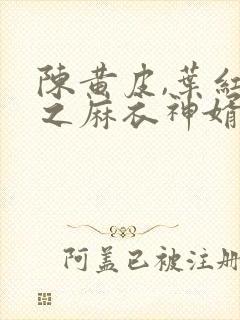 陳黃皮,葉紅
之麻衣神婿
阿盖已被注册